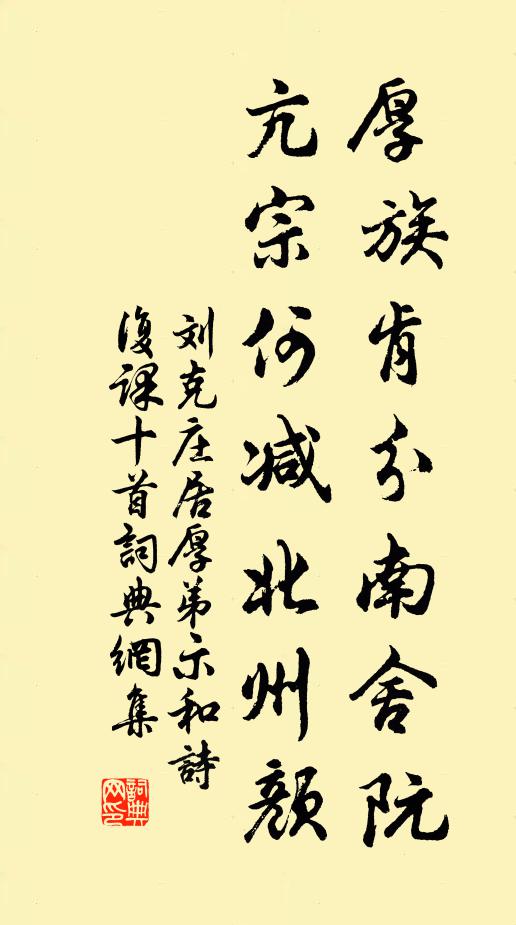 厚族肯分南舍阮
亢宗何减北州颜
刘克庄居厚弟示和詩
復課十首詞典網集
詞典
网印